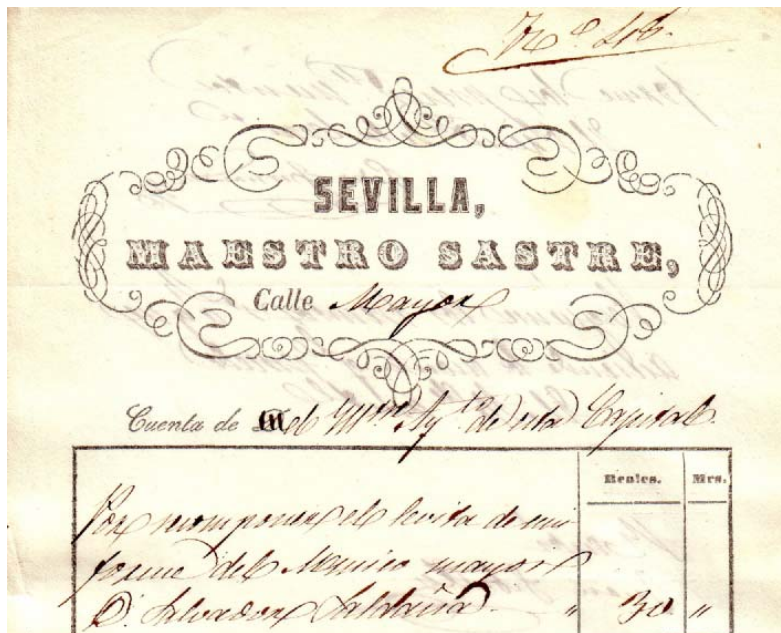 SEVILLA,
MAESTRO SASTRE,
Calle Mayor
Cuenta de el Ayto de esta Capital.
Reales. Mrs.
Por recomponer el levita de uni
forme del Musico mayor
D. Salvador Saldaña " 30 "